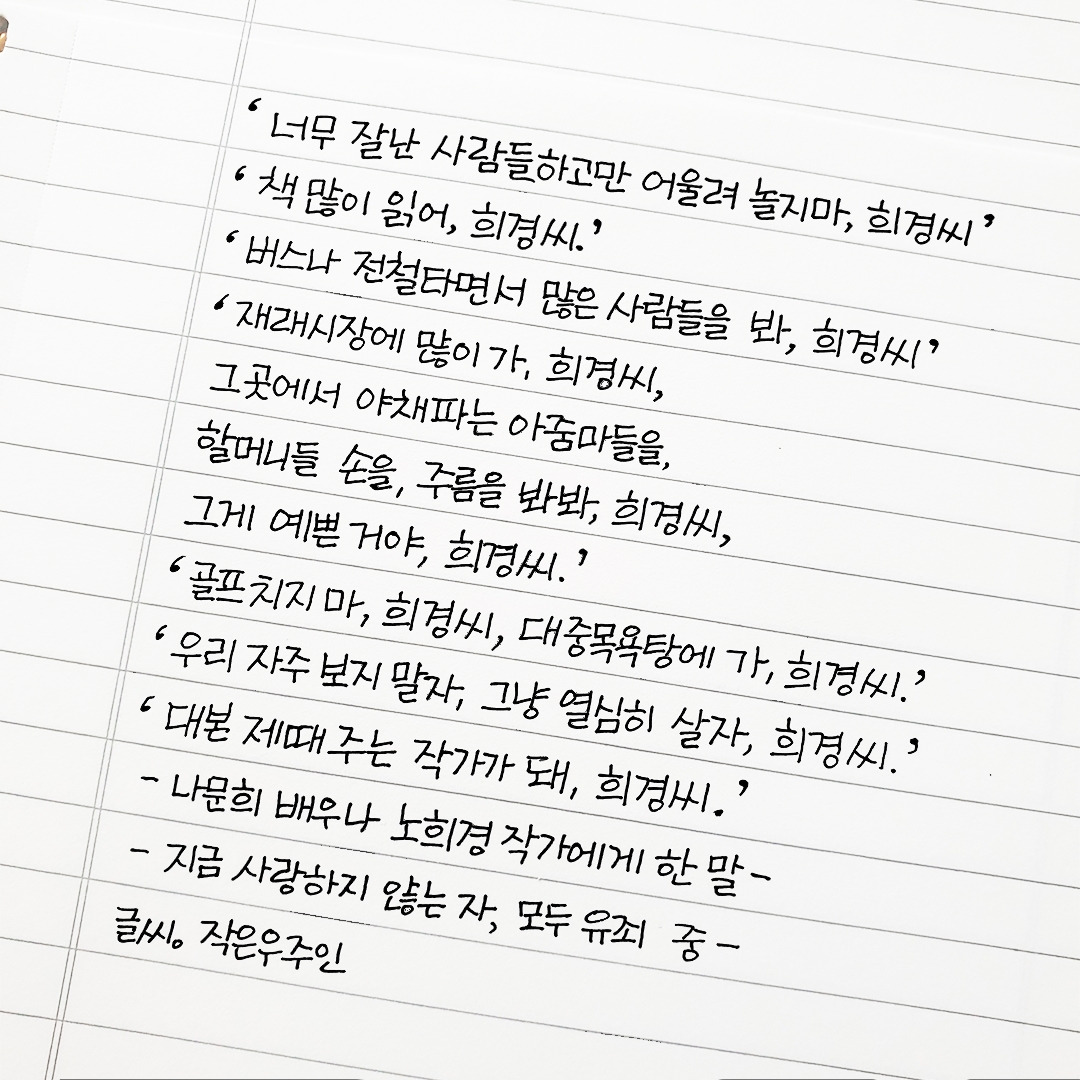 ‘너무 잘난 사람들하고만 어울려 놀지마, 희경씨’
‘책 많이 읽어, 희경씨.’
‘버스나 전철타면서 많은 사람들을 봐, 희경씨’
‘재래시장에 많이 가, 희경씨,
그곳에서 야채파는 아줌마들을,
할머니들 손을, 주름을 봐봐, 희경씨,
그게 예쁜 거야, 희경씨.’
‘골프치지 마, 희경씨, 대중목욕탕에 가, 희경씨.’
‘우리 자주 보지 말자, 그냥 열심히 살자, 희경씨.’
‘대본 제때 주는 작가가 돼, 희경씨.’
- 나문희 배우나 노희경 작가에게 한 말 -
- 지금 사랑하지 않는 자, 모두 유죄 중 -
글씨。작은우주인